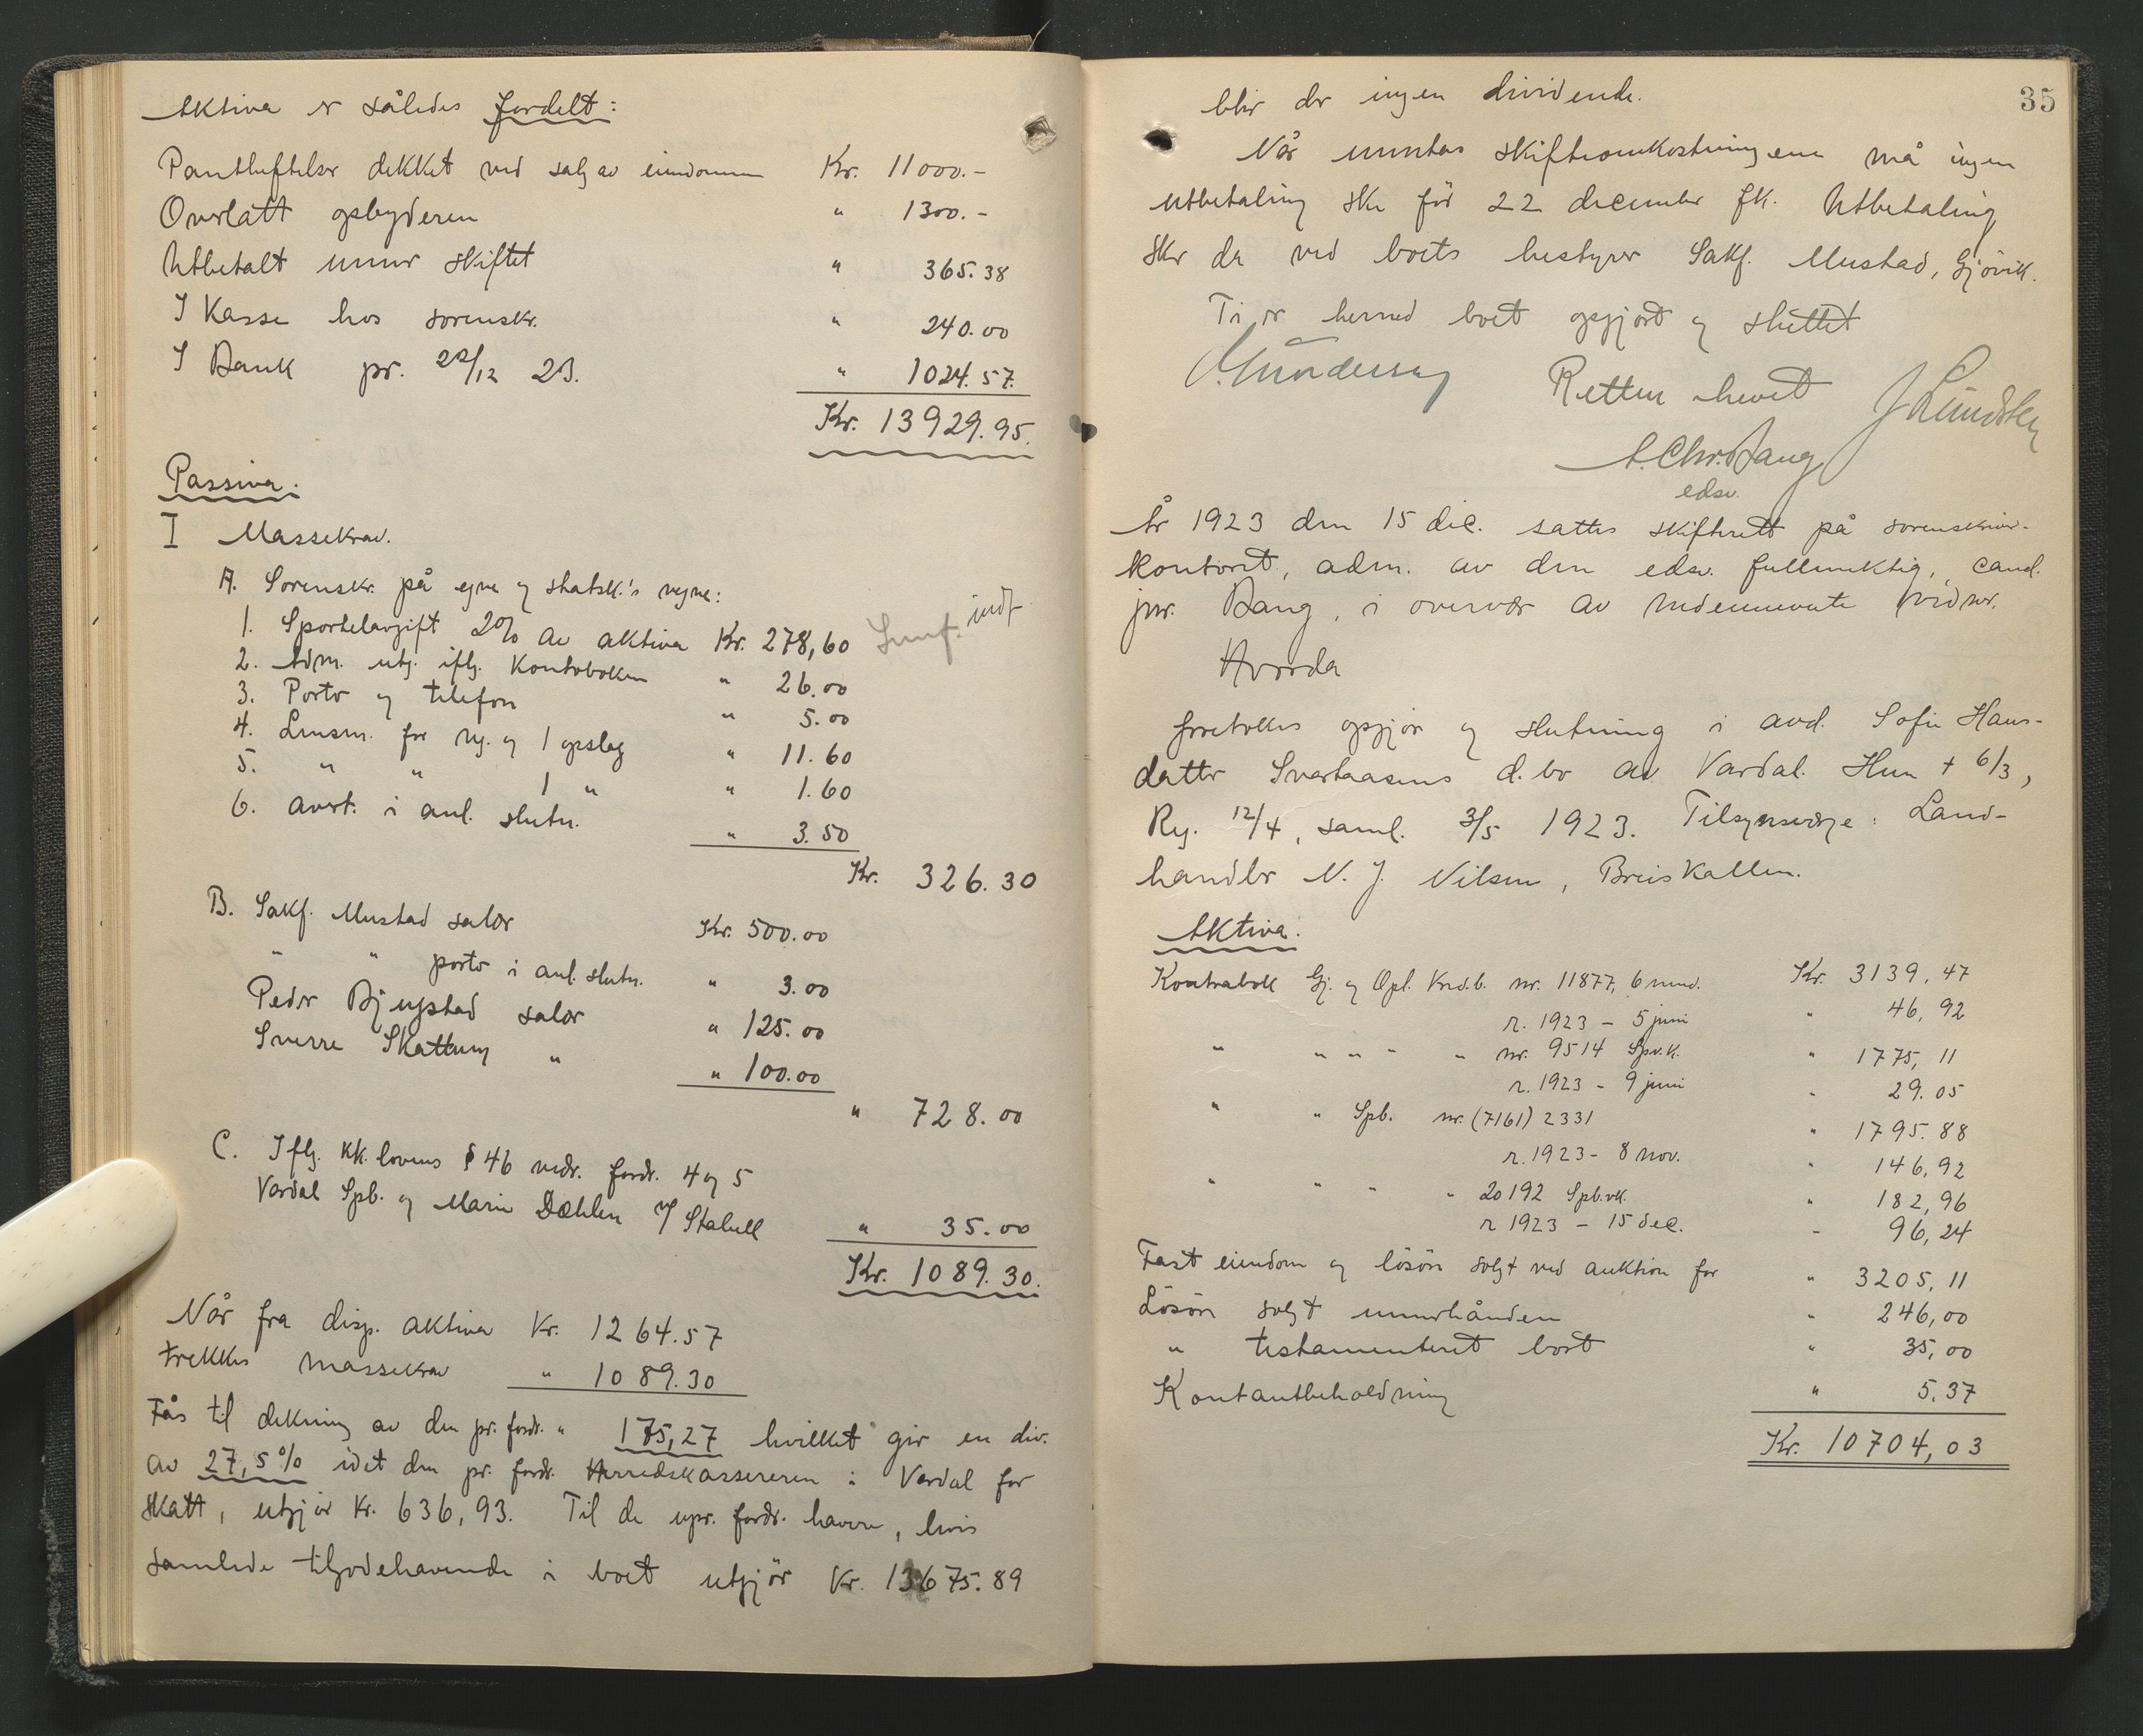 Aktiva er således fordelt:
Pantheftelser dekket ved salg av eiendommen Kr. 11000.-
Overlatt opbyderen " 1300.-
Utbetalt under skiftet " 365.38
I Kasse hos sorenskr. " 240.00
I Bank pr. 22/12 23. " 1024.57.
Kr. 13929.95.
Passiva.
I Massekrav.
A. Sorenskr. på egne og statsk.'s vegne:
1. Sportelavgift 2% av aktiva Kr. 278,60
2. Adm. utg. iflg. Kontoboken " 26.00
3. Porto og telefon " 5.00
4. Lensm. for reg. og 1 opslag " 11.60
5. " " 1 " " 1.60
6. avert. i anl. slutn. " 3.50
Kr. 326.30
B. Sakf. Mustad salær Kr. 500.00
" " porto i anl. slutn. " 3.00
Peder Bjugstad salær " 125.00
Sverre Skattum " " 100.00
" 728.00
C. Iflg. kk. lovens § 46 vedr. fordr. 4 og 5
Vardal Spb. og Marie Dæhlen v/ Stabell " 35.00
Kr. 1089.30.
Når fra disp. aktiva Kr. 1264.57
trekkes massekrav " 1089.30
Fås til dekning av den pr. fordr. " 175,27 hvilket gir en div.
av 27,5% idet den pr. fordr. Herredskassereren i Vardal for
skatt, utgjør Kr. 636,93. Til de upr. fordr. havere, hvis
samlede tilgodehavende i boet utgjör Kr. 13675.89
35
blir der ingen dividende.
Når unntas skifteomkostningene må ingen
utbetaling ske för 22 december fk. Utbetaling
sker da ved boets bestyrer Sakf. Mustad, Gjövik.
Ti er herved boet opgjort og sluttet
Retten hevet
A. Chr. Bang
edsv.
År 1923 den 15 dec. sattes skifterett på sorenskriver-
kontoret, adm. av den edsv. fullmektig, cand.
jur. Bang, i overvær av nedennevnte vidner.
Hvorda
foretokes opgjör og slutning i avd. Sofie Hans-
datter Svartaasens d.bo av Vardal. Hun + 6/3,
Reg. 12/4, saml. 3/5 1923. Tilsynsværge: Land-
handler N. J. Nilsen, Breiskallen.
Aktiva.
Kontrabok Gj. og Opl. Kred.b. nr. 11877, 6 mnd. Kr. 3139,47
r. 1923 - 5 juni " 46,92
" " " " " nr. 9514 Spv.k. " 1775,11
r. 1923 - 9 juni " 29.05
" " Spb. nr. (7161) 2331 " 1795.88
r. 1923 - 8 nov. " 146,92
" " " " 20192 Spb.vk. " 182,96
r 1923 - 15 dec. " 96,24
Fast eiendom og lösöre solgt ved auktion for " 3205,11
Lösöre solgt underhånden " 246,00
" testamenteret bort " 35,00
Kontantbeholdning " 5.37
Kr. 10704,03